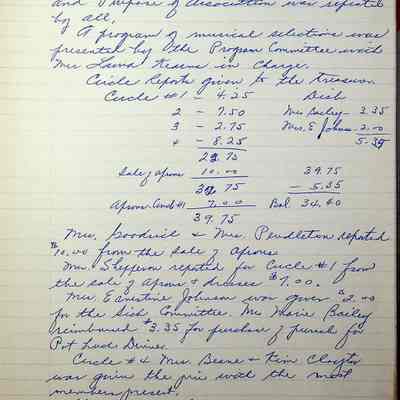 and Purpose of Association was repeated
by all.
A program of musical selections was
presented by the Program Committee with
Mrs Hearns in Charge.
Circle Reports given to the treasurer
Circle #1 - 4.25 Disb
2 - 7.50 Mrs Bailey - 3.35
3 - 2.75 Mrs. E Johnson 2.00
4 - 8.25 5.35
22.75
Sale of aprons 10.00 39.75
32.75 - 5.35
Aprons Circle #1 7.00 Bal 34.40
39.75
Mrs. Goodrich & Mrs. Pendleton reported
$10.00 from the sale of aprons.
Mrs. Shepperson reported for Circle #1 from
the sale of Aprons & dresses $7.00.
Mrs. Ernestine Johnson was given $2.00
for the Sick Committee. Mrs Marie Bailey
reimbursed $3.35 for purchase of for
Pot Luck Dinner.
Circle #4 Mrs. & Kim
was given the with the most
members present.